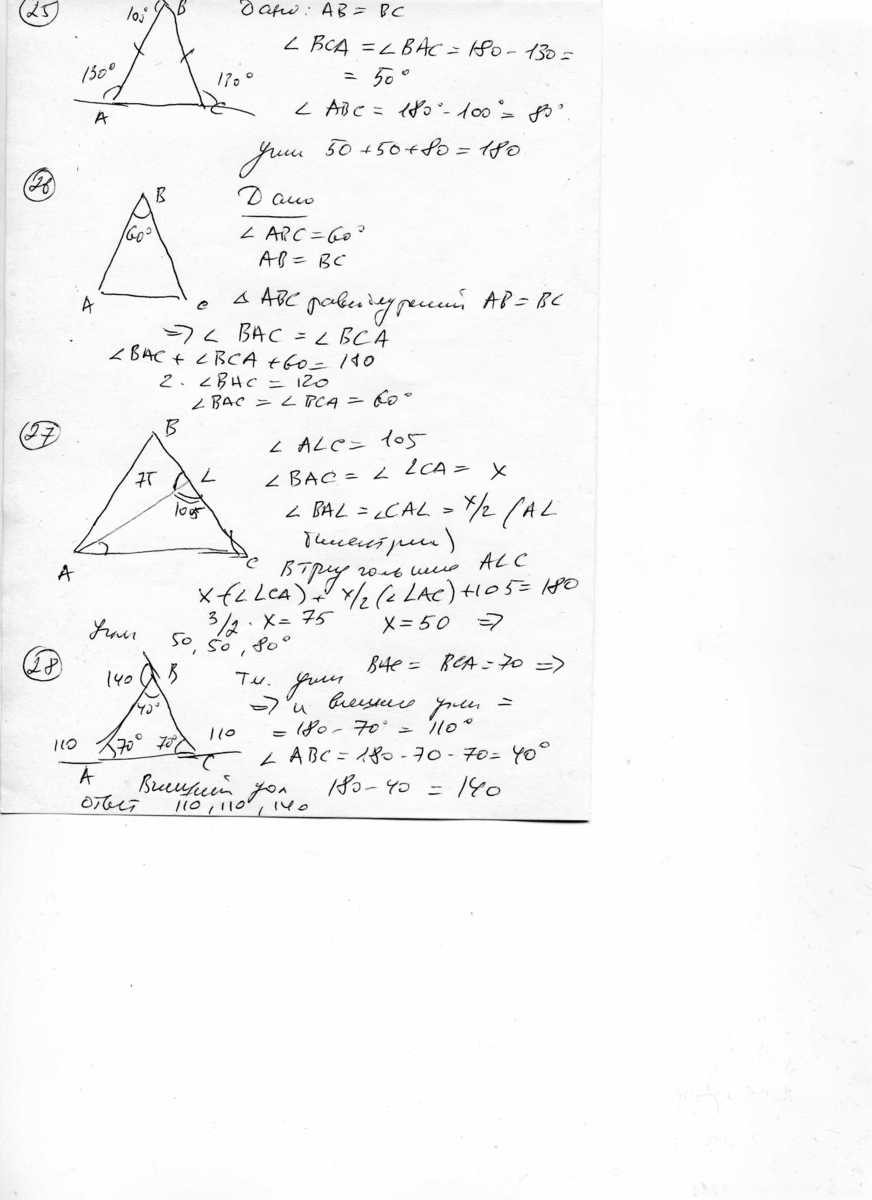 25
100° B
130°
130°
A
C
Дано: AB = BC
∠ BCA = ∠ BAC = 180 - 130 =
= 50°
∠ ABC = 180° - 100° = 80°
Углы 50 + 50 + 80 = 180
26
B
60°
A
C
Дано
∠ ABC = 60°
AB = BC
△ ABC AB = BC
=> ∠ BAC = ∠ BCA
∠BAC + ∠BCA + 60 = 180
2 · ∠BAC = 120
∠BAC = ∠ BCA = 60°
27
B
75
L
105
A
C
∠ ALC = 105
∠ BAC = ∠ LCA = x
∠ BAL = ∠CAL = x/2 (AL
биссектриса)
В треугольнике ALC
x (∠LCA) + x/2 (∠LAC) + 105 = 180
3/2 · x = 75 x = 50 =>
Углы 50, 50, 80°
28
140 B
40°
110
70° 70°
110
A
C
Т.к. углы BAC = BCA = 70 =>
=> и внешние углы =
= 180 - 70° = 110°
∠ ABC = 180 - 70 - 70 = 40°
Внешний угол 180 - 40 = 140
Ответ 110, 110, 140